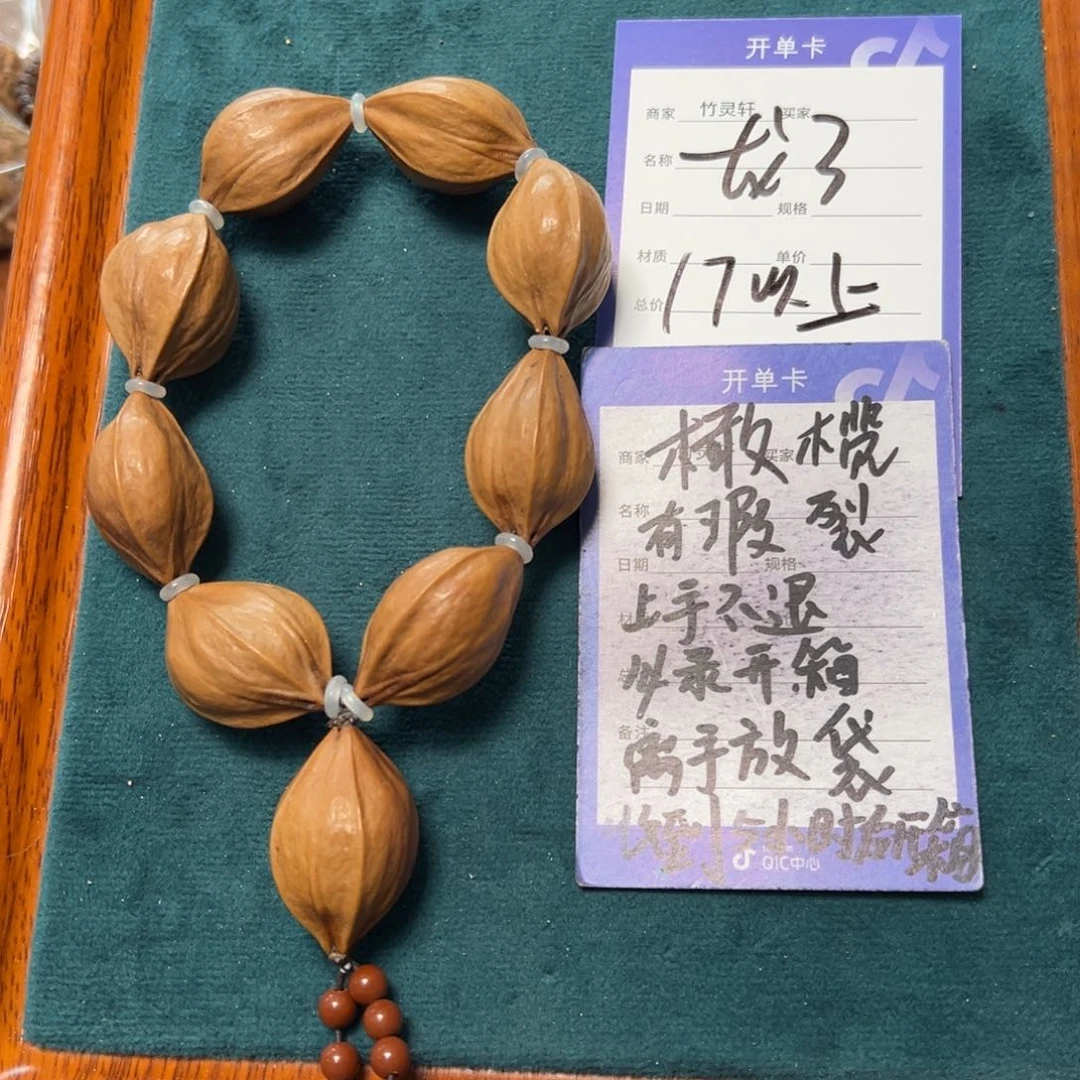 开单卡
商家 竹灵轩 买家
名称
日期 规格
材质 单价
17以上
总价
开单卡
橄榄
商家 买家
名称
有瑕裂
日期 规格
上手不退
必录开箱
备注
离手放袋
收到 小时后开箱
QIC中心